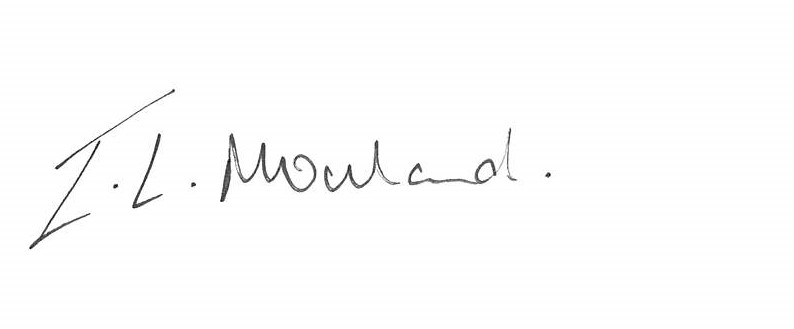 I. L. Morland.